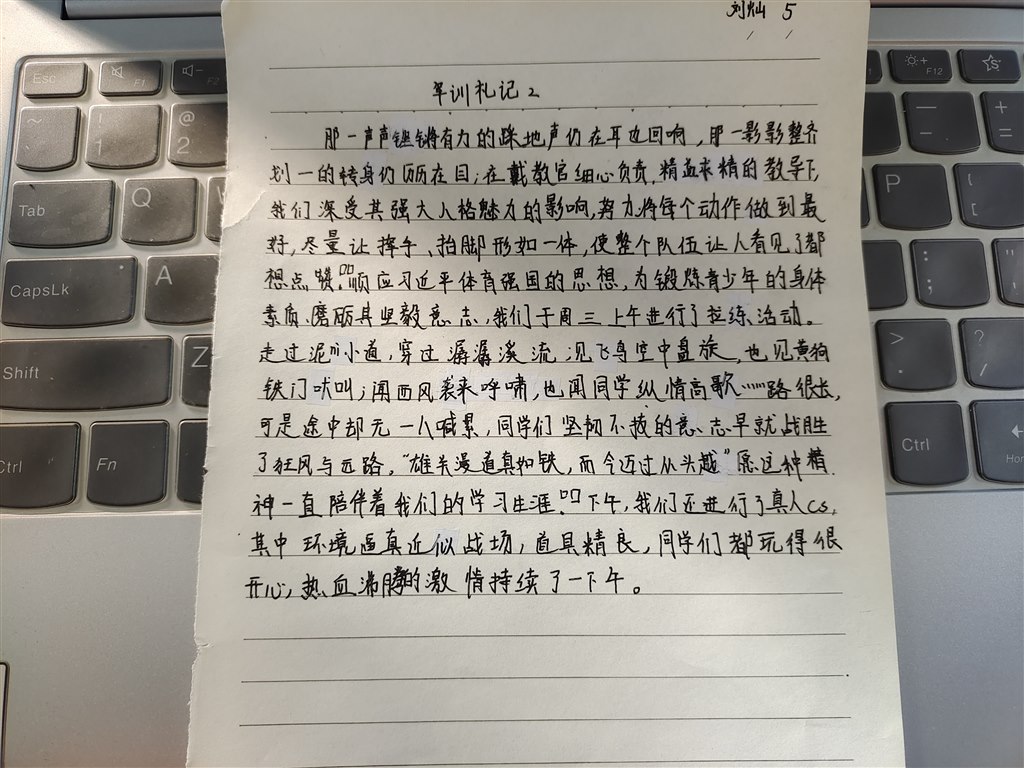 刘灿 5
军训札记2
那一声声铿锵有力的跺地声仍在耳边回响，那一影影整齐
划一的转身仍历历在目；在戴教官细心负责，精益求精的教导下，
我们深受其强大人格魅力的影响，努力将每个动作做到最
好，尽量让挥手、抬脚形如一体，使整个队伍让人看见了都
想点赞。顺应习近平体育强国的思想，为锻炼青少年的身体
素质、磨砺其坚毅意志，我们于周三上午进行了拉练活动。
走过泥川小道，穿过潺潺溪流，见飞鸟空中盘旋，也见黄狗
铁门吠叫；闻西风袭来呼啸，也闻同学纵情高歌……路很长，
可是途中却无一人喊累，同学们坚韧不拔的意志早就战胜
了狂风与远路，“雄关漫道真如铁，而今迈过从头越”愿这种精
神一直陪伴着我们的学习生涯。下午，我们还进行了真人cs，
其中环境逼真近似战场，道具精良，同学们都玩得很
开心，热血沸腾的激情持续了一下午。
Esc
F1
F2
F12
~
!
1
@
2
Tab
Q
CapsLk
A
Shift
Z
Ctrl
Fn
P
{
[
:
;
>
.
?
/
Ctrl
_
-
+
=